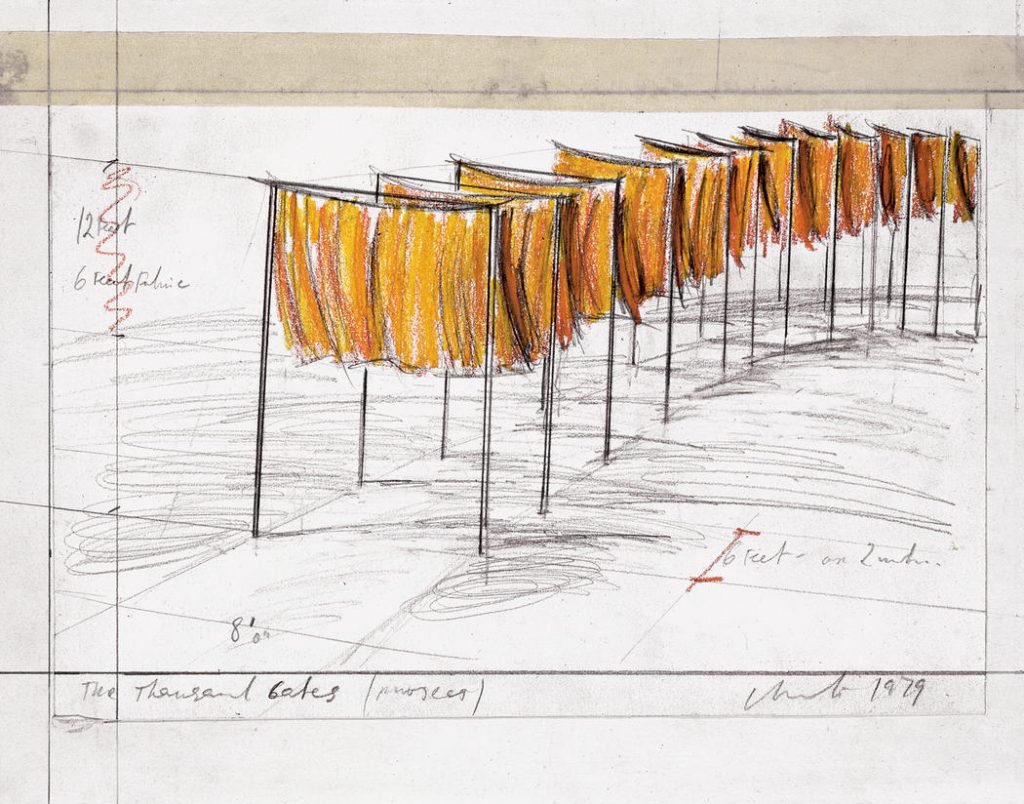 12 feet
6 feet fabric
6 feet - or 2
8'0"
The Thousand Gates (project) Christo 1979